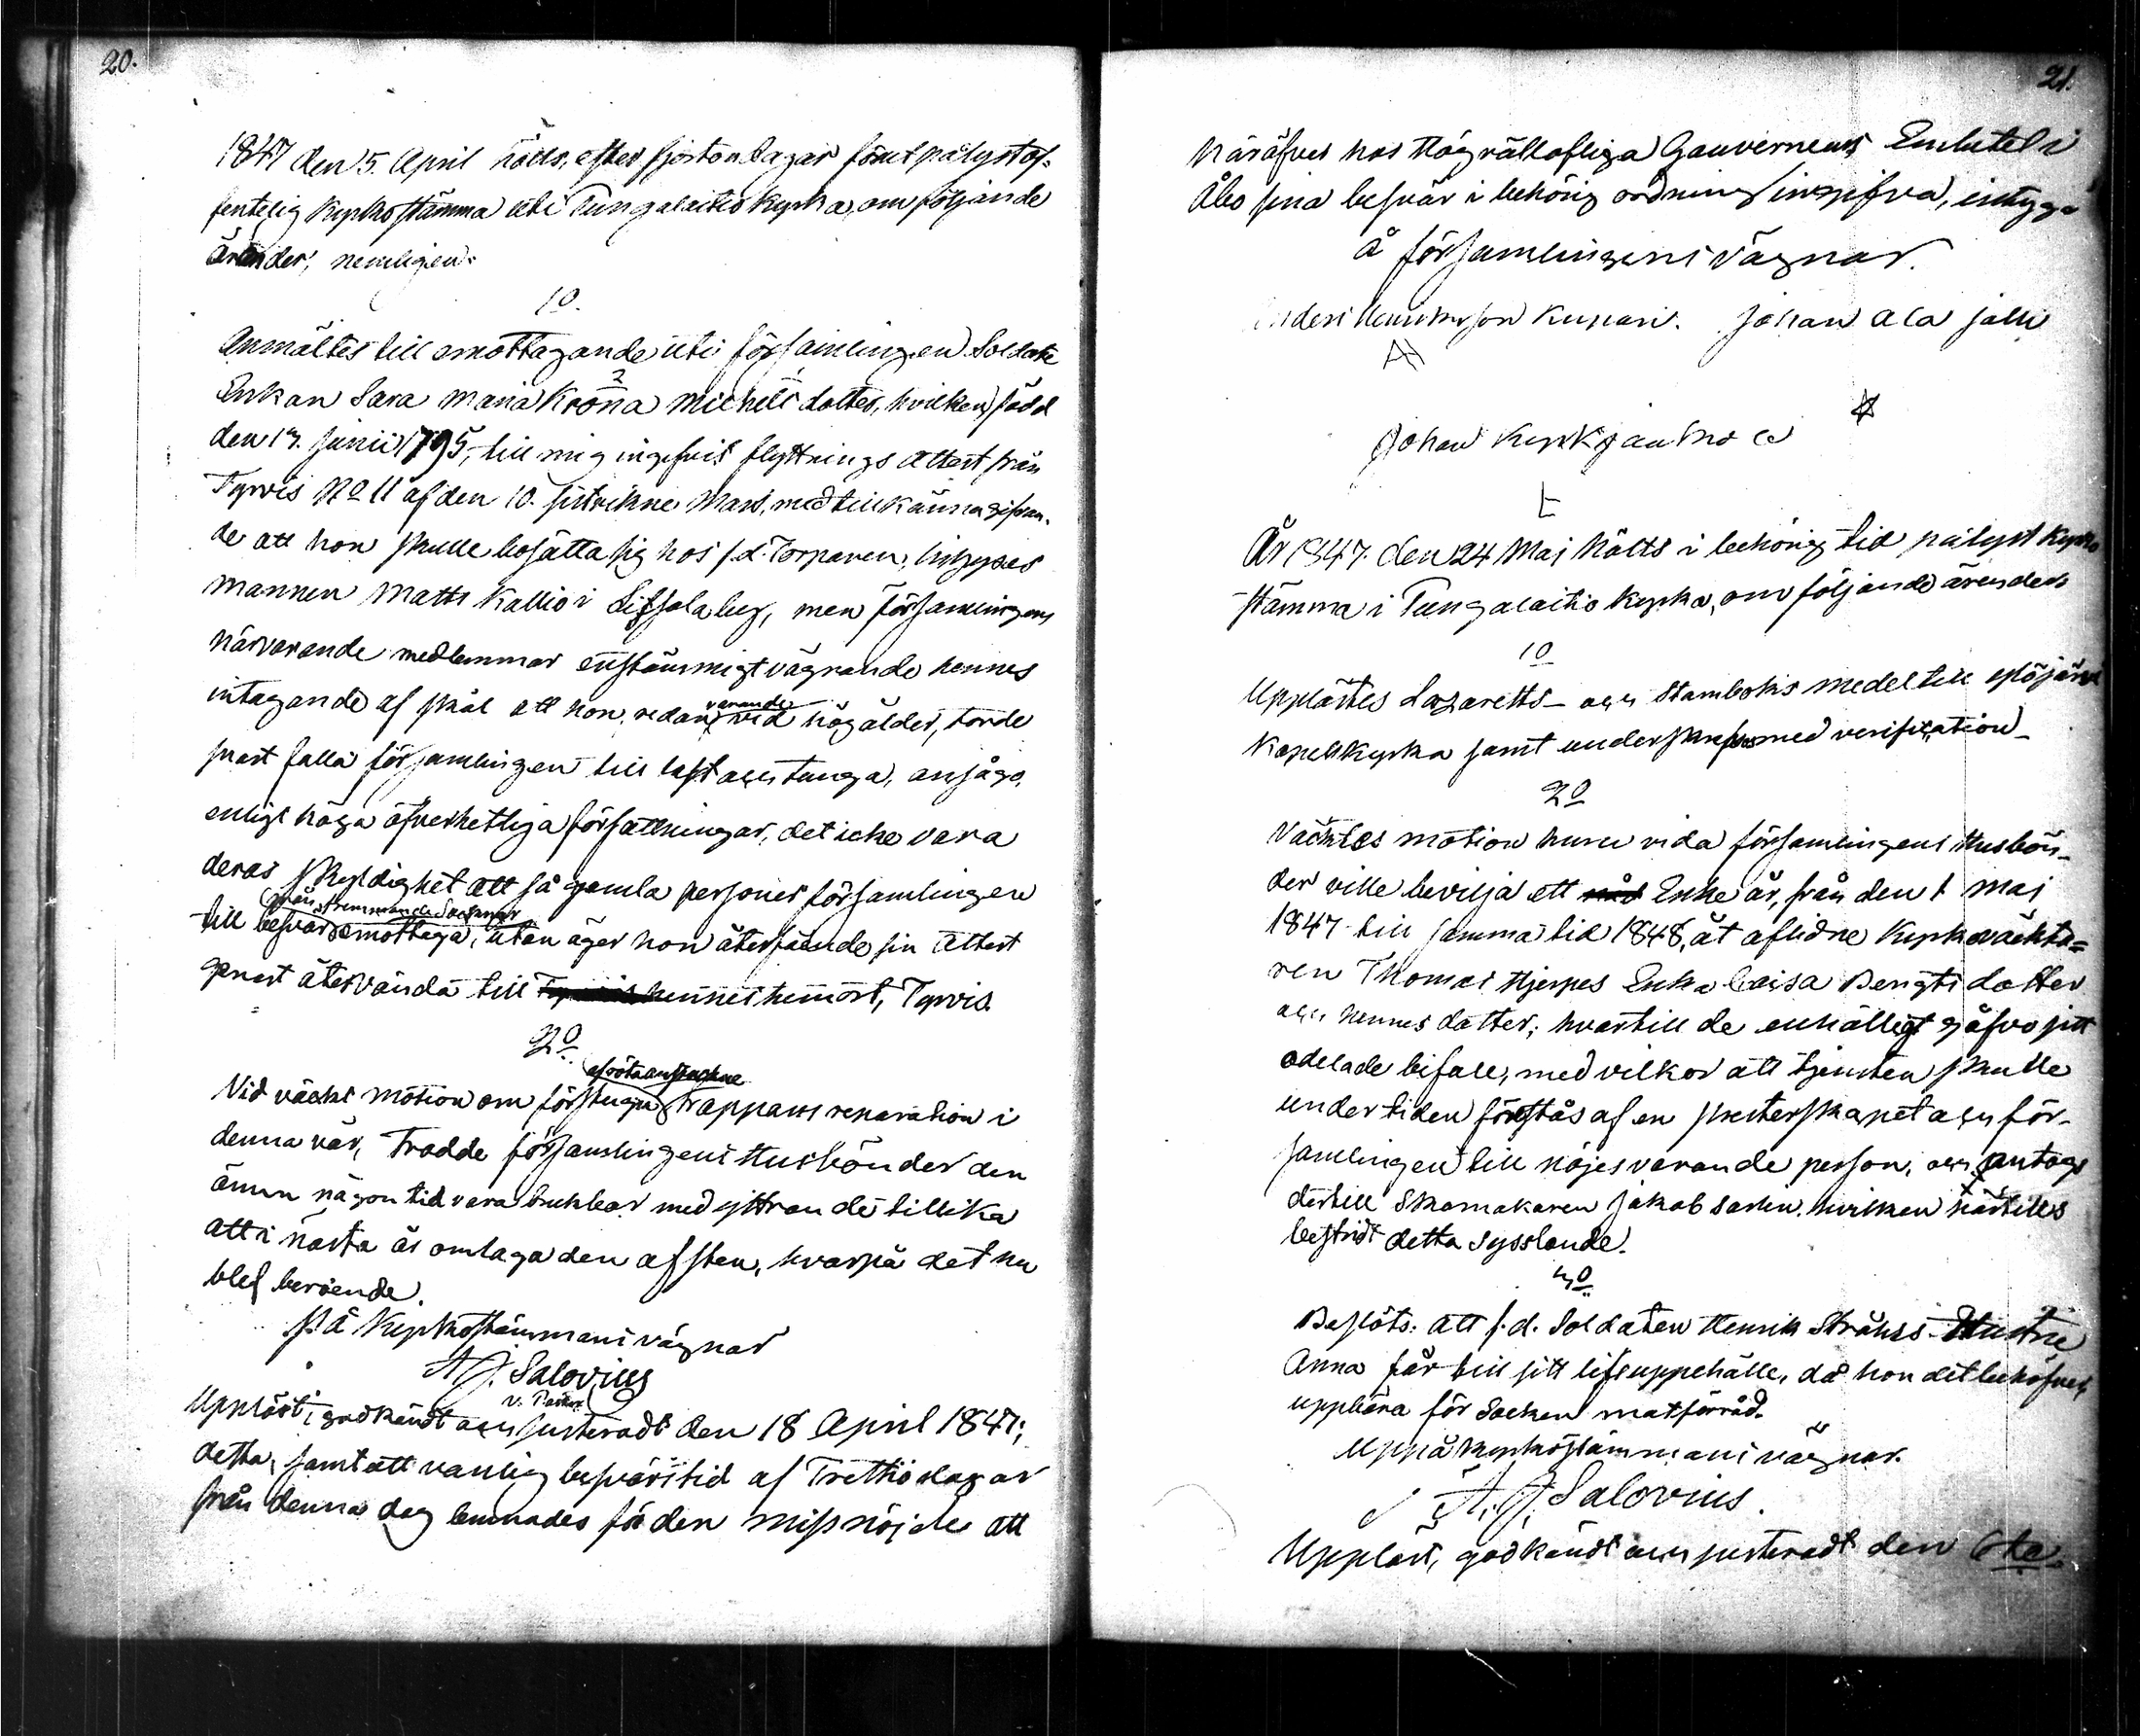 20.
1847 den 5. April hölts, efter fjorton dagar förut pålyst of-
fentelig Kyrkostämma uti Pungalaitio kyrka, om följande
ärender, nemligen:
1o.
Anmältes till emottagande uti församlingen Soldate
Enkan Sara Maria Krona Michels dotter, hvilken född
den 13. Junii 1795, till mig ingifvit flyttnings Attest från
Tyrvis No 11 af den 10. sistvikne Mars, med tillkännagifvan-
de att hon skulle bosätta sig hos f.d. Torparen, Inhyses
mannen Matts Kallio i Liffola by, men församlingens
närvarande medlemmar enstämmigt vägrande hennes
intagande af skäl att hon, redan varande vid hög ålder, torde
snart falla församlingen till last och tunga, ansågo,
enligt höga öfverhetliga författningar, det icke vara
deras skyldighet att så gamla personer församlingen
från fremmande Socknar
till besvär emottaga, utan äger hon återfående sin Attest
genast återvända till hennes hemort, Tyrvis.
2o.
Vid väckt motion om förstugu trappans reparation i
denna vår, Trodde församlingens Husbönder den
ännu någon tid vara brukbar med yttrande tillika
att i nästa år omlaga den af sten, hvarpå det nu
blef beroende.
På Kyrkostämmans vägnar
A. J. Salovius
v. Pastor
Uppläst, godkändt och justeradt den 18 April 1847;
detta, samt att vanlig besvärstid af Trettio dagar
från denna dag lemnades för den missnöjde att
21.
häröfver hos Högvällofliga Gouvernements Embetet i
Åbo sina besvär i behörig ordning ingifva, intyga
å församlingens vägnar.
Anders Kupari. Johan Ala jalli
Johan Kyrkjautio
År 1847 den 24 Maj hölts i behörig tid pålyst Kyrko
stämma i Pungalaitio Kyrka, om följande ärender
1o
Upplästes Lazaretts- och Stamboks medel till
Kapellkyrka samt underskrefvos med verification
2o
Väcktes motion huru vida församlingens Husbön-
der ville bevilja ett Enke år, från den 1 Maj
1847 till samma tid 1848, åt aflidne Kyrkovächta-
ren Thomas Hjerpes Enka Caisa Bengts dotter
och hennes dotter; hvartill de enhälligt gåfvo sitt
odelade bifall, med vilkor att tjensten skulle
under tiden förestås af en presterskapet och för-
samlingen till nöjes varande person, och antogs
dertill Skomakaren Jakob hvilken härtills
bestridt detta sysslande.
3o
Beslöts: att f.d. Soldaten Henrik Stråhls Hustru
Anna får till sitt lifsuppehälle, då hon det behöfver,
uppbära för Socken matförråd.
Uppå Kyrkostämmans vägnar.
A. J. Salovius.
Uppläst, godkändt och justeradt den 6te